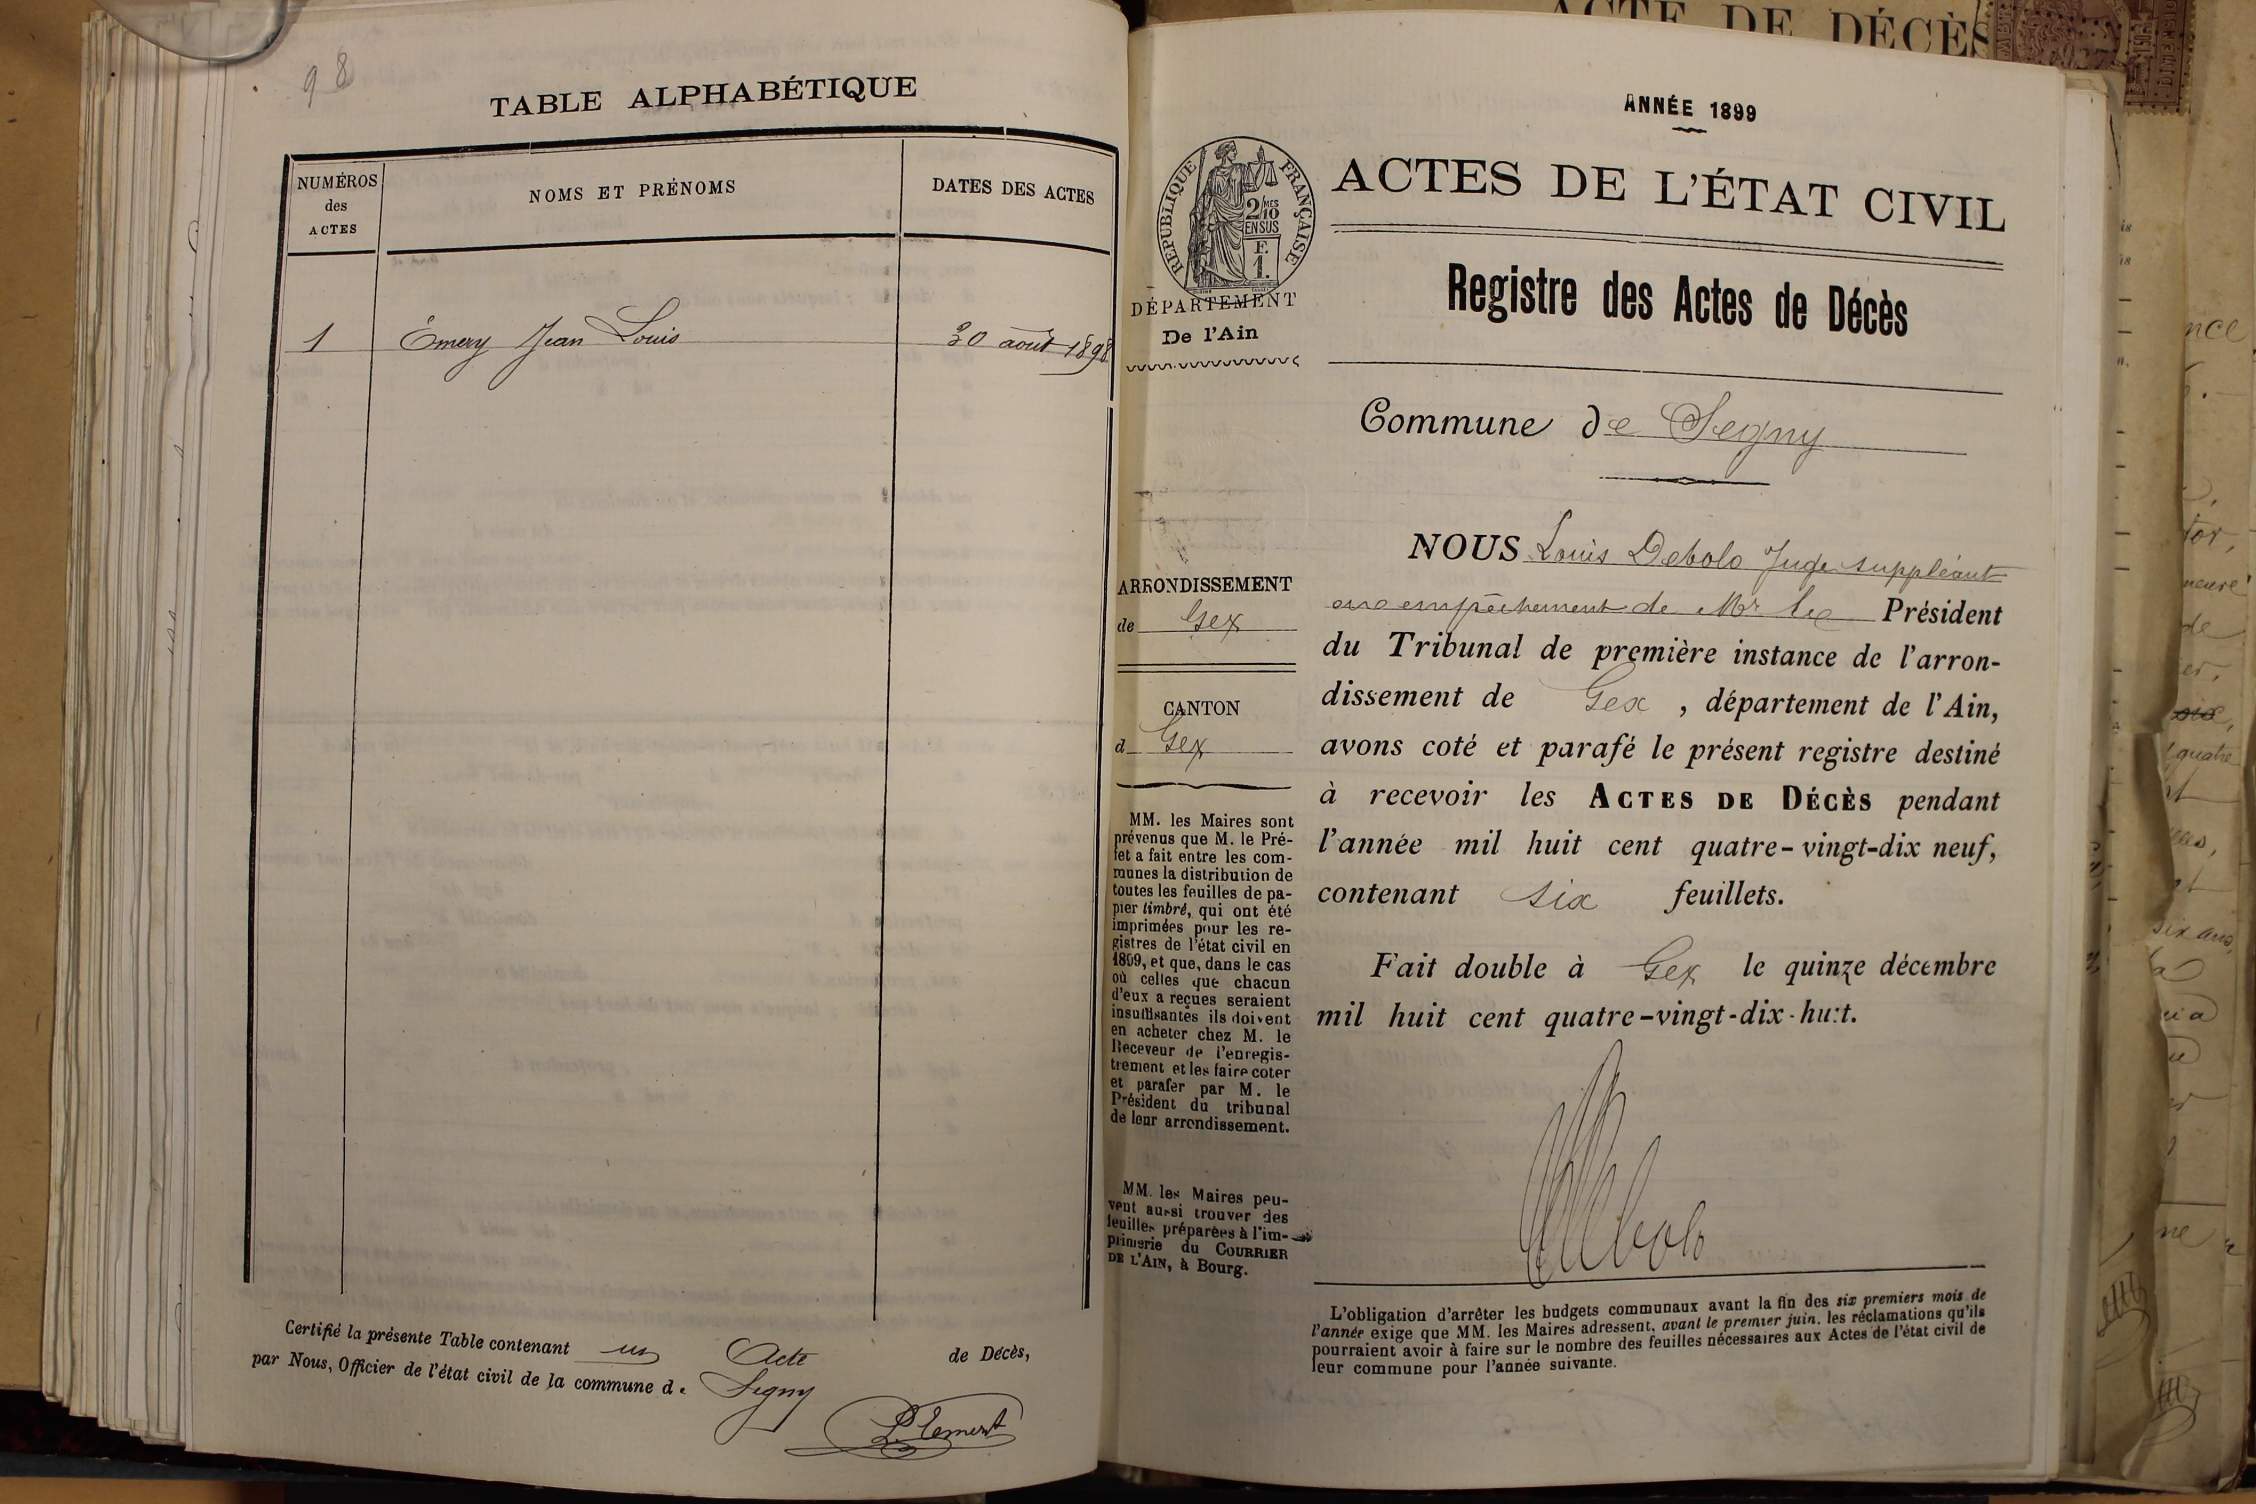 98
TABLE ALPHABÉTIQUE
NUMÉROS
des
ACTES
NOMS ET PRÉNOMS
DATES DES ACTES
1 Émery Jean Louis 30 août 1898
Certifié la présente Table contenant un Acte de Décès,
par Nous, Officier de l'état civil de la commune de Segny
Clement
ACTE DE DÉCÈS
ANNÉE 1899
RÉPUBLIQUE FRANÇAISE
2/10 MES
EN SUS
F.
1.
DÉPARTEMENT
De l'Ain
ACTES DE L'ÉTAT CIVIL
Registre des Actes de Décès
Commune de Segny
ARRONDISSEMENT
de Gex
CANTON
d Gex
MM. les Maires sont
prévenus que M. le Pré-
fet a fait entre les com-
munes la distribution de
toutes les feuilles de pa-
pier timbré, qui ont été
imprimées pour les re-
gistres de l'état civil en
1899, et que, dans le cas
où celles que chacun
d'eux a reçues seraient
insuffisantes ils doivent
en acheter chez M. le
Receveur de l'enregis-
trement et les faire coter
et parafer par M. le
Président du tribunal
de leur arrondissement.
MM. les Maires peu-
vent aussi trouver des
feuilles préparées à l'im-
primerie du COURRIER
DE L'AIN, à Bourg.
NOUS Louis Debolo Juge suppléant
empêchement de Mr le Président
du Tribunal de première instance de l'arron-
dissement de Gex, département de l'Ain,
avons coté et parafé le présent registre destiné
à recevoir les ACTES DE DÉCÈS pendant
l'année mil huit cent quatre-vingt-dix neuf,
contenant six feuillets.
Fait double à Gex le quinze décembre
mil huit cent quatre-vingt-dix-huit.
Debolo
L'obligation d'arrêter les budgets communaux avant la fin des six premiers mois de
l'année exige que MM. les Maires adressent, avant le premier juin, les réclamations qu'ils
pourraient avoir à faire sur le nombre des feuilles nécessaires aux Actes de l'état civil de
leur commune pour l'année suivante.